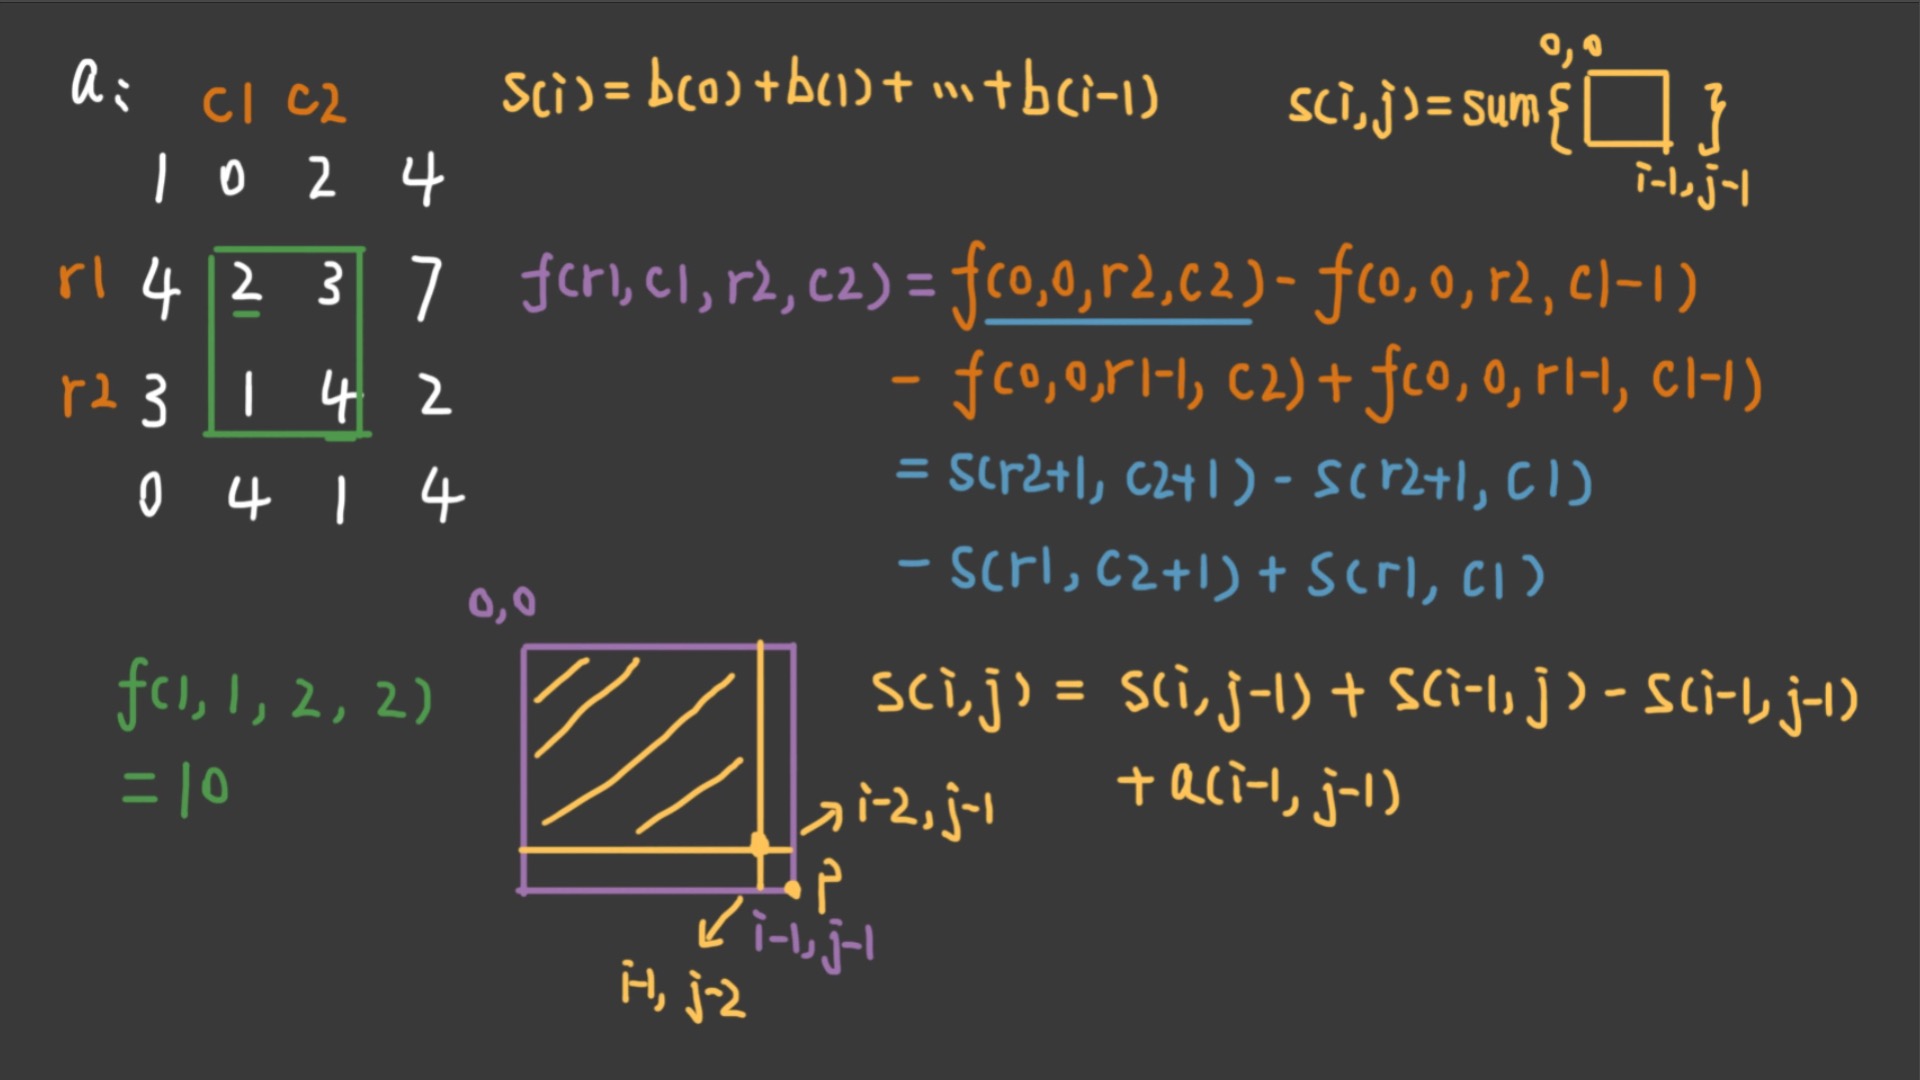 a:
c1 c2
1 0 2 4
r1 4 2 3 7
r2 3 1 4 2
0 4 1 4
S(i) = b(0) + b(1) + ... + b(i-1)
0,0
s(i,j) = sum{ }
i-1, j-1
f(r1, c1, r2, c2) = f(0,0, r2, c2) - f(0, 0, r2, c1-1)
- f(0,0,r1-1, c2) + f(0, 0, r1-1, c1-1)
= S(r2+1, c2+1) - S(r2+1, c1)
- S(r1, c2+1) + S(r1, c1)
f(1, 1, 2, 2)
= 10
0,0
i-2, j-1
P
i-1, j-1
i-1, j-2
S(i,j) = S(i, j-1) + S(i-1, j) - S(i-1, j-1)
+ a(i-1, j-1)